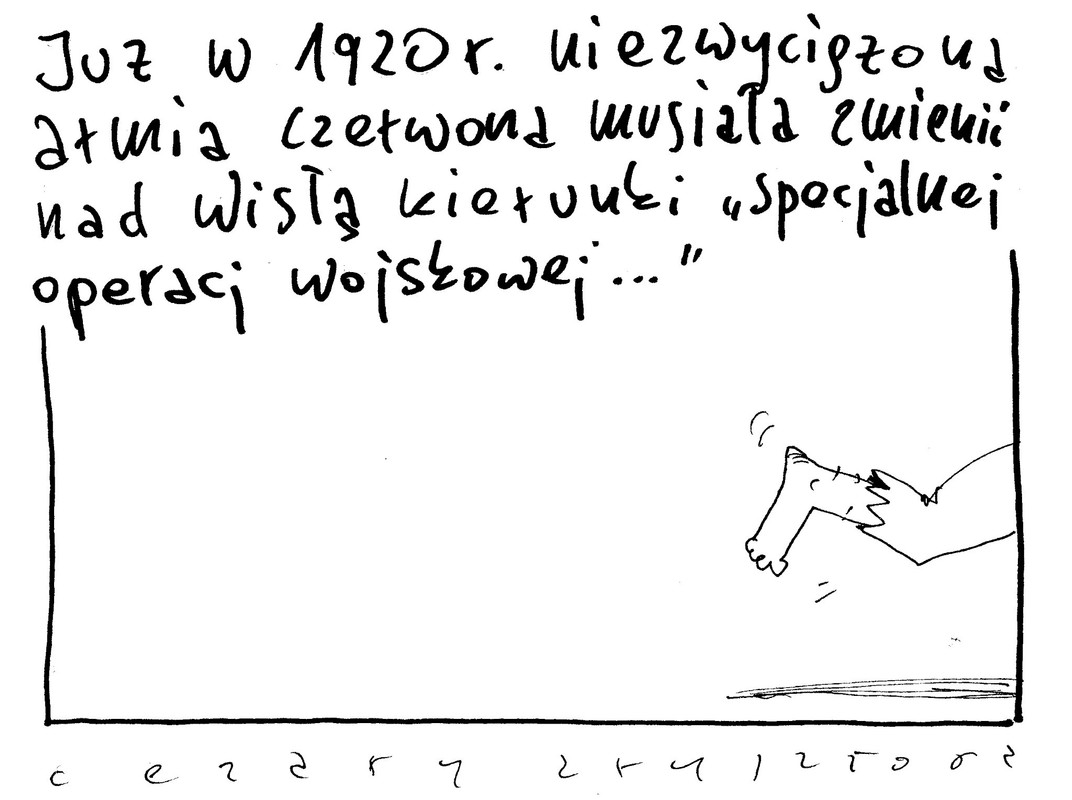 Już w 1920 r. niezwyciężona
armia czerwona musiała zmienić
nad Wisłą kierunki „specjalnej
operacj wojskowej..."
cezary krysztopa